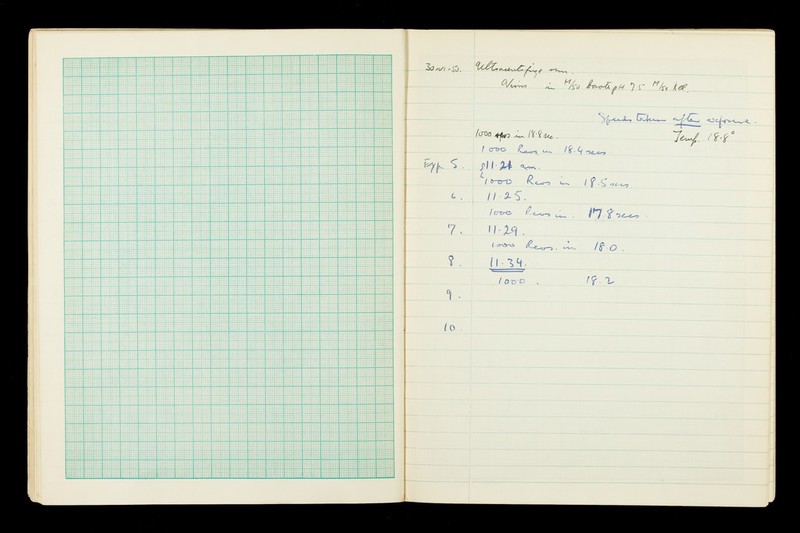 30-VI-50. Ultracentrifuge run.
Virus in M/50 borate pH 7.5 M/50 NaCl.
Speeds taken after exposure.
1000 revs in 18.8 sec. Temp. 18.8°
1000 Revs in 18.4 secs
Exp. 5. 11.21 am.
1000 Revs in 18.5 secs
6. 11.25.
1000 Revs in. 17.8 secs.
7. 11-29.
1000 Revs. in 18.0.
8. 11.34.
1000. 18.2
9.
10